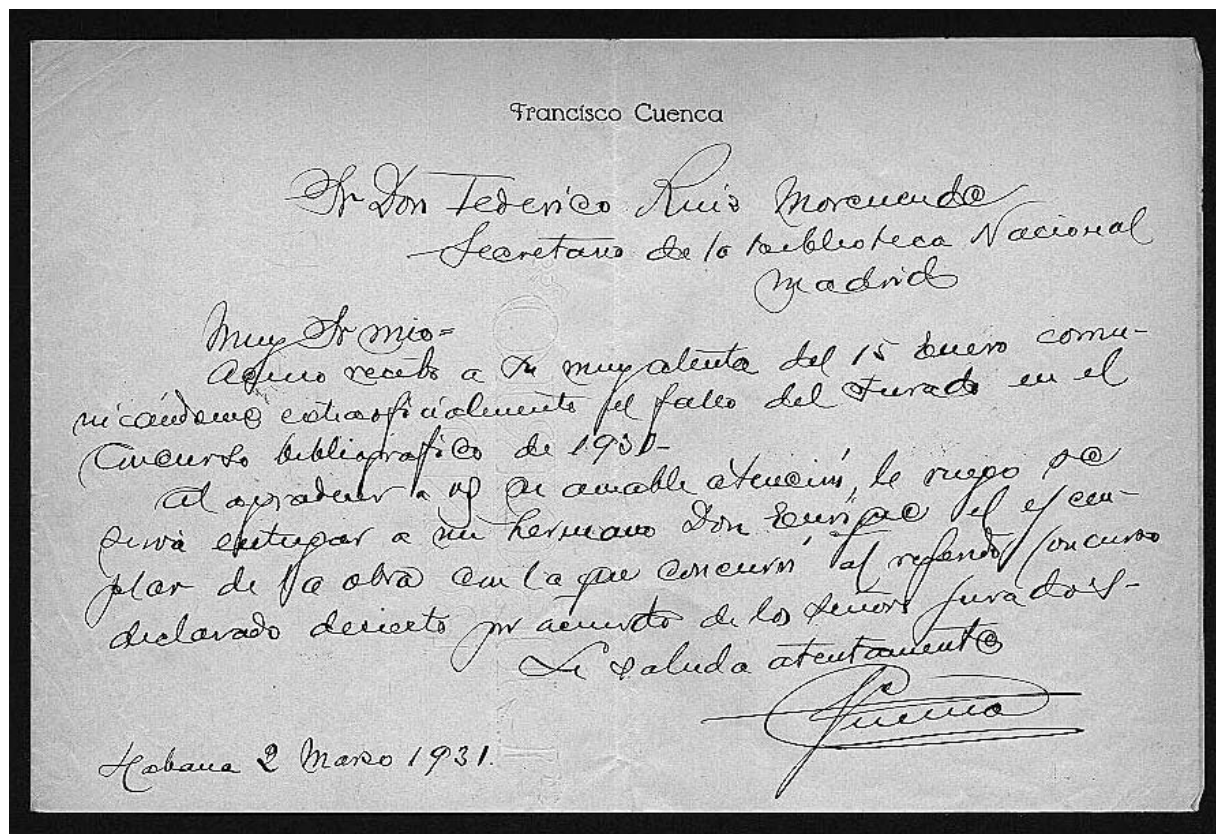 Francisco Cuenca
Sr Don Federico Ruiz Morcuende
Secretario de la biblioteca Nacional
Madrid
Muy Sr mio=
Acuso recibo a su muy atenta del 15 Enero comu-
nicándome extraoficialmente el fallo del Jurado en el
Concurso bibliografico de 1930-
Al agradecer a Vd su amable atención, le ruego se
sirva entregar a mi hermano Don Enrique el ejem-
plar de la obra con la que concurrí al referido Concurso
declarado desierto por acuerdo de los señores Jurados-
Le saluda atentamente
FCuenca
Habana 2 Marzo 1931.